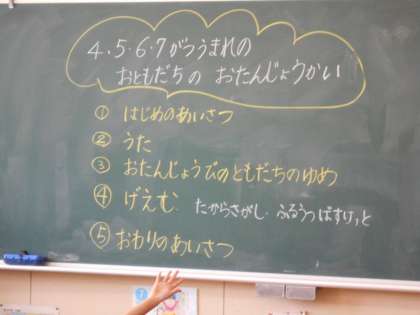 4.5.6.7がつうまれの
おともだちの おたんじょうかい
① はじめのあいさつ
② うた
③ おたんじょうびのともだちのゆめ
④ げえむ. たからさがし. ふるうつばすけっと
⑤ おわりのあいさつ